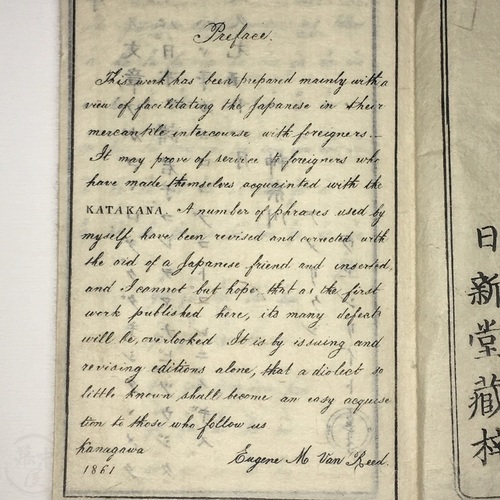 Preface.
This work has been prepared mainly with a
view of facilitating the Japanese in their
mercantile intercourse with foreigners.—
It may prove of service to foreigners who
have made themselves acquainted with the
KATAKANA. A number of phrases used by
myself have been revised and corrected, with
the aid of a Japanese friend and inserted,
and I cannot but hope that as the first
work published here, its many defeats
will be, overlooked It is by issuing and
revising editions alone, that a dialect so
little known shall become an easy acquisi
tion to those who follow us
Kanagawa
1861
Eugene M Van Reed.
日新堂藏梓